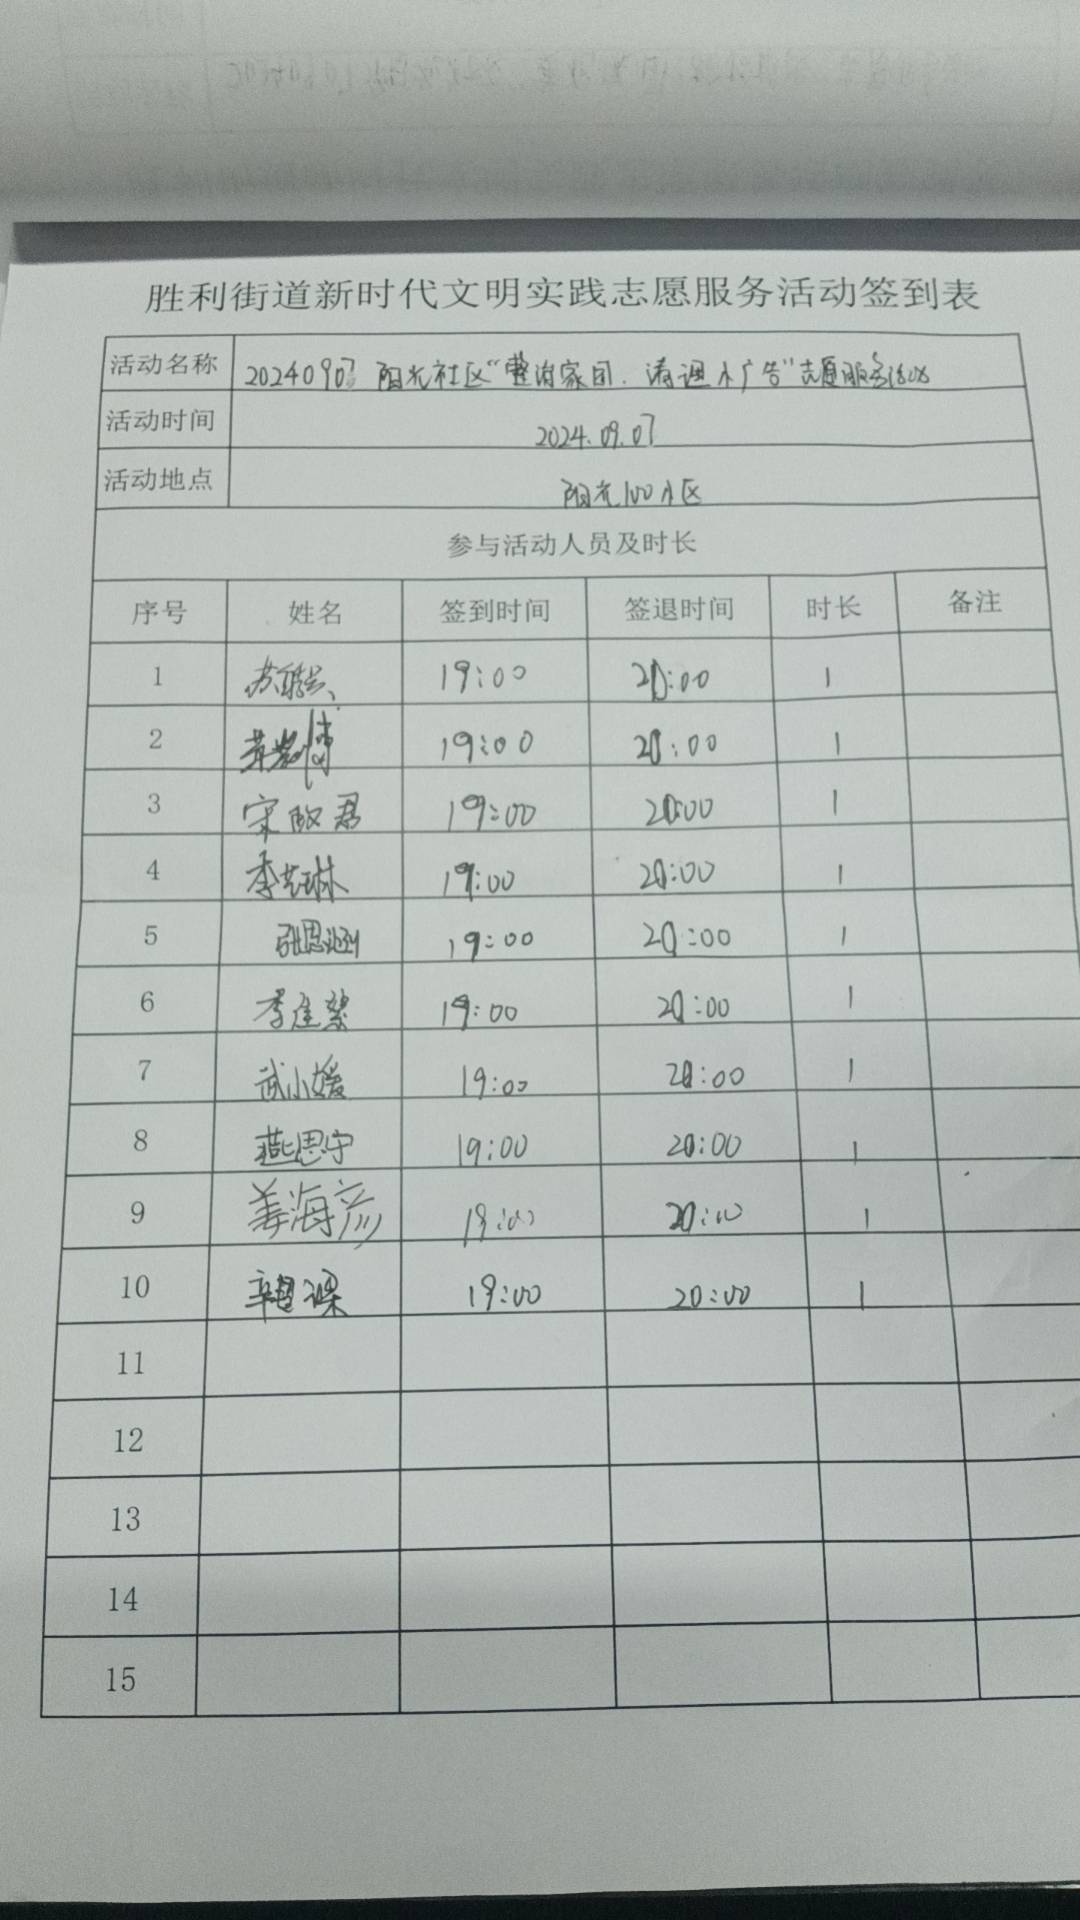 胜利街道新时代文明实践志愿服务活动签到表
活动名称 20240907 阳光社区“整治家园.清理小广告”志愿服务活动
活动时间 2024.09.07
活动地点 阳光100小区
参与活动人员及时长
序号 姓名 签到时间 签退时间 时长 备注
1 19:00 20:00 1
2 19:00 20:00 1
3 宋政君 19:00 20:00 1
4 李艺琳 19:00 20:00 1
5 19:00 20:00 1
6 19:00 20:00 1
7 武小媛 19:00 20:00 1
8 燕思宁 19:00 20:00 1
9 姜海彦 19:00 20:00 1
10 19:00 20:00 1
11
12
13
14
15